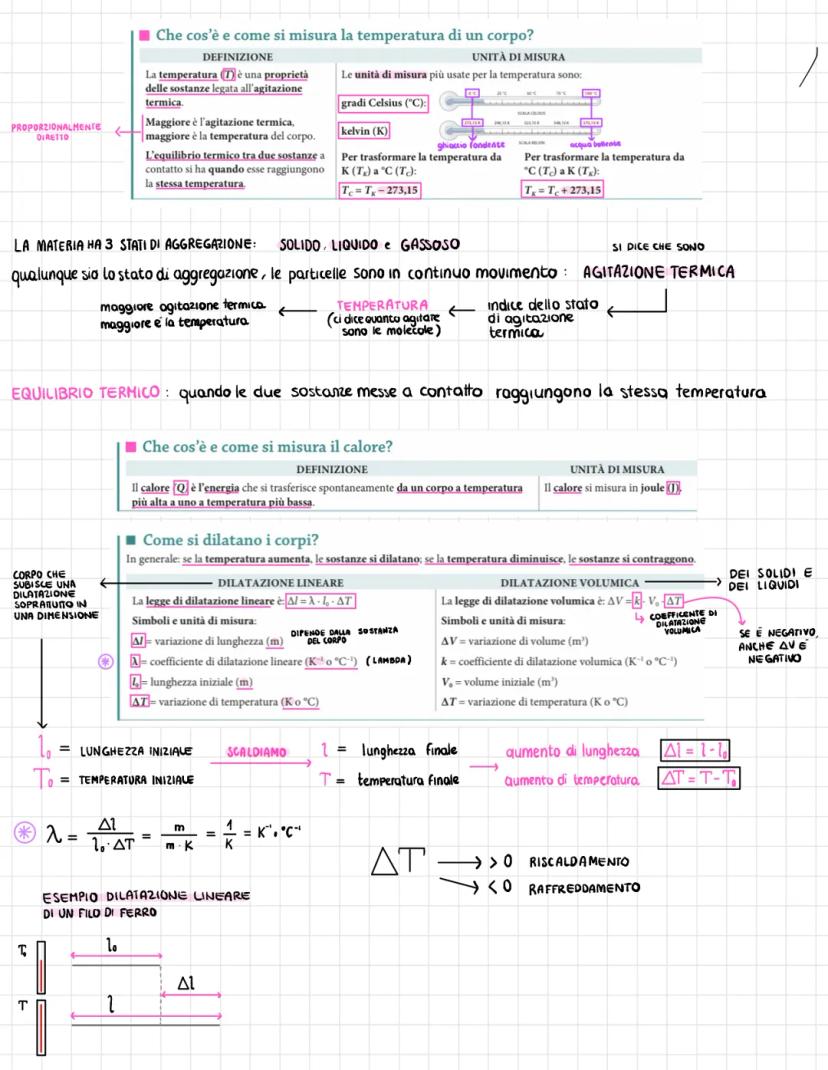 Che cos'è e come si misura la temperatura di un corpo?
DEFINIZIONE
La temperatura (T) è una proprietà
delle sostanze legata all'agitazione
termica.
Maggiore è l'agitazione termica,
maggiore è la temperatura del corpo.
L'equilibrio termico tra due sostanze a
contatto si ha quando esse raggiungono
la stessa temperatura.
PROPORZIONALMENTE
DIRETTO
UNITÀ DI MISURA
Le unità di misura più usate per la temperatura sono:
gradi Celsius (°C):
0 °C 25 °C 50 °C 75 °C 100 °C
SCALA CELSIUS
kelvin (K)
273,15 K 298,15 K 323,15 K 348,15 K 373,15 K
SCALA KELVIN
ghiaccio fondente acqua bollente
Per trasformare la temperatura da
K (TK) a °C (TC):
TC = TK − 273,15
Per trasformare la temperatura da
°C (TC) a K (TK):
TK = TC + 273,15
LA MATERIA HA 3 STATI DI AGGREGAZIONE: SOLIDO, LIQUIDO e GASSOSO
SI DICE CHE SONO
qualunque sia lo stato di aggregazione, le particelle sono in continuo movimento: AGITAZIONE TERMICA
indice dello stato
di agitazione
termica
TEMPERATURA
(ci dice quanto agitate
sono le molecole)
maggiore agitazione termica
maggiore è la temperatura
EQUILIBRIO TERMICO: quando le due sostanze messe a contatto raggiungono la stessa temperatura
Che cos'è e come si misura il calore?
DEFINIZIONE
Il calore (Q) è l'energia che si trasferisce spontaneamente da un corpo a temperatura
più alta a uno a temperatura più bassa.
UNITÀ DI MISURA
Il calore si misura in joule (J).
Come si dilatano i corpi?
In generale: se la temperatura aumenta, le sostanze si dilatano; se la temperatura diminuisce, le sostanze si contraggono.
CORPO CHE
SUBISCE UNA
DILATAZIONE
SOPRATUTTO IN
UNA DIMENSIONE
DILATAZIONE LINEARE
La legge di dilatazione lineare è: Δl = λ · l₀ · ΔT
Simboli e unità di misura:
Δl = variazione di lunghezza (m)
DIPENDE DALLA SOSTANZA
DEL CORPO
λ = coefficiente di dilatazione lineare (K⁻¹ o °C⁻¹) (LAMBDA)
l₀ = lunghezza iniziale (m)
ΔT = variazione di temperatura (K o °C)
DILATAZIONE VOLUMICA
DEI SOLIDI E
DEI LIQUIDI
La legge di dilatazione volumica è: ΔV = k · V₀ · ΔT
COEFFICENTE DI
DILATAZIONE
VOLUMICA
SE È NEGATIVO,
ANCHE ΔV È
NEGATIVO
Simboli e unità di misura:
ΔV = variazione di volume (m³)
k = coefficiente di dilatazione volumica (K⁻¹ o °C⁻¹)
V₀ = volume iniziale (m³)
ΔT = variazione di temperatura (K o °C)
l₀ = LUNGHEZZA INIZIALE SCALDIAMO l = lunghezza finale aumento di lunghezza Δl = l - l₀
T₀ = TEMPERATURA INIZIALE T = temperatura finale aumento di temperatura ΔT = T - T₀
λ = Δl / l₀ · ΔT = m / m · K = 1 / K = K⁻¹ o °C⁻¹
ΔT > 0 RISCALDAMENTO
< 0 RAFFREDDAMENTO
ESEMPIO DILATAZIONE LINEARE
DI UN FILO DI FERRO
T₀ l₀
Δl
T l